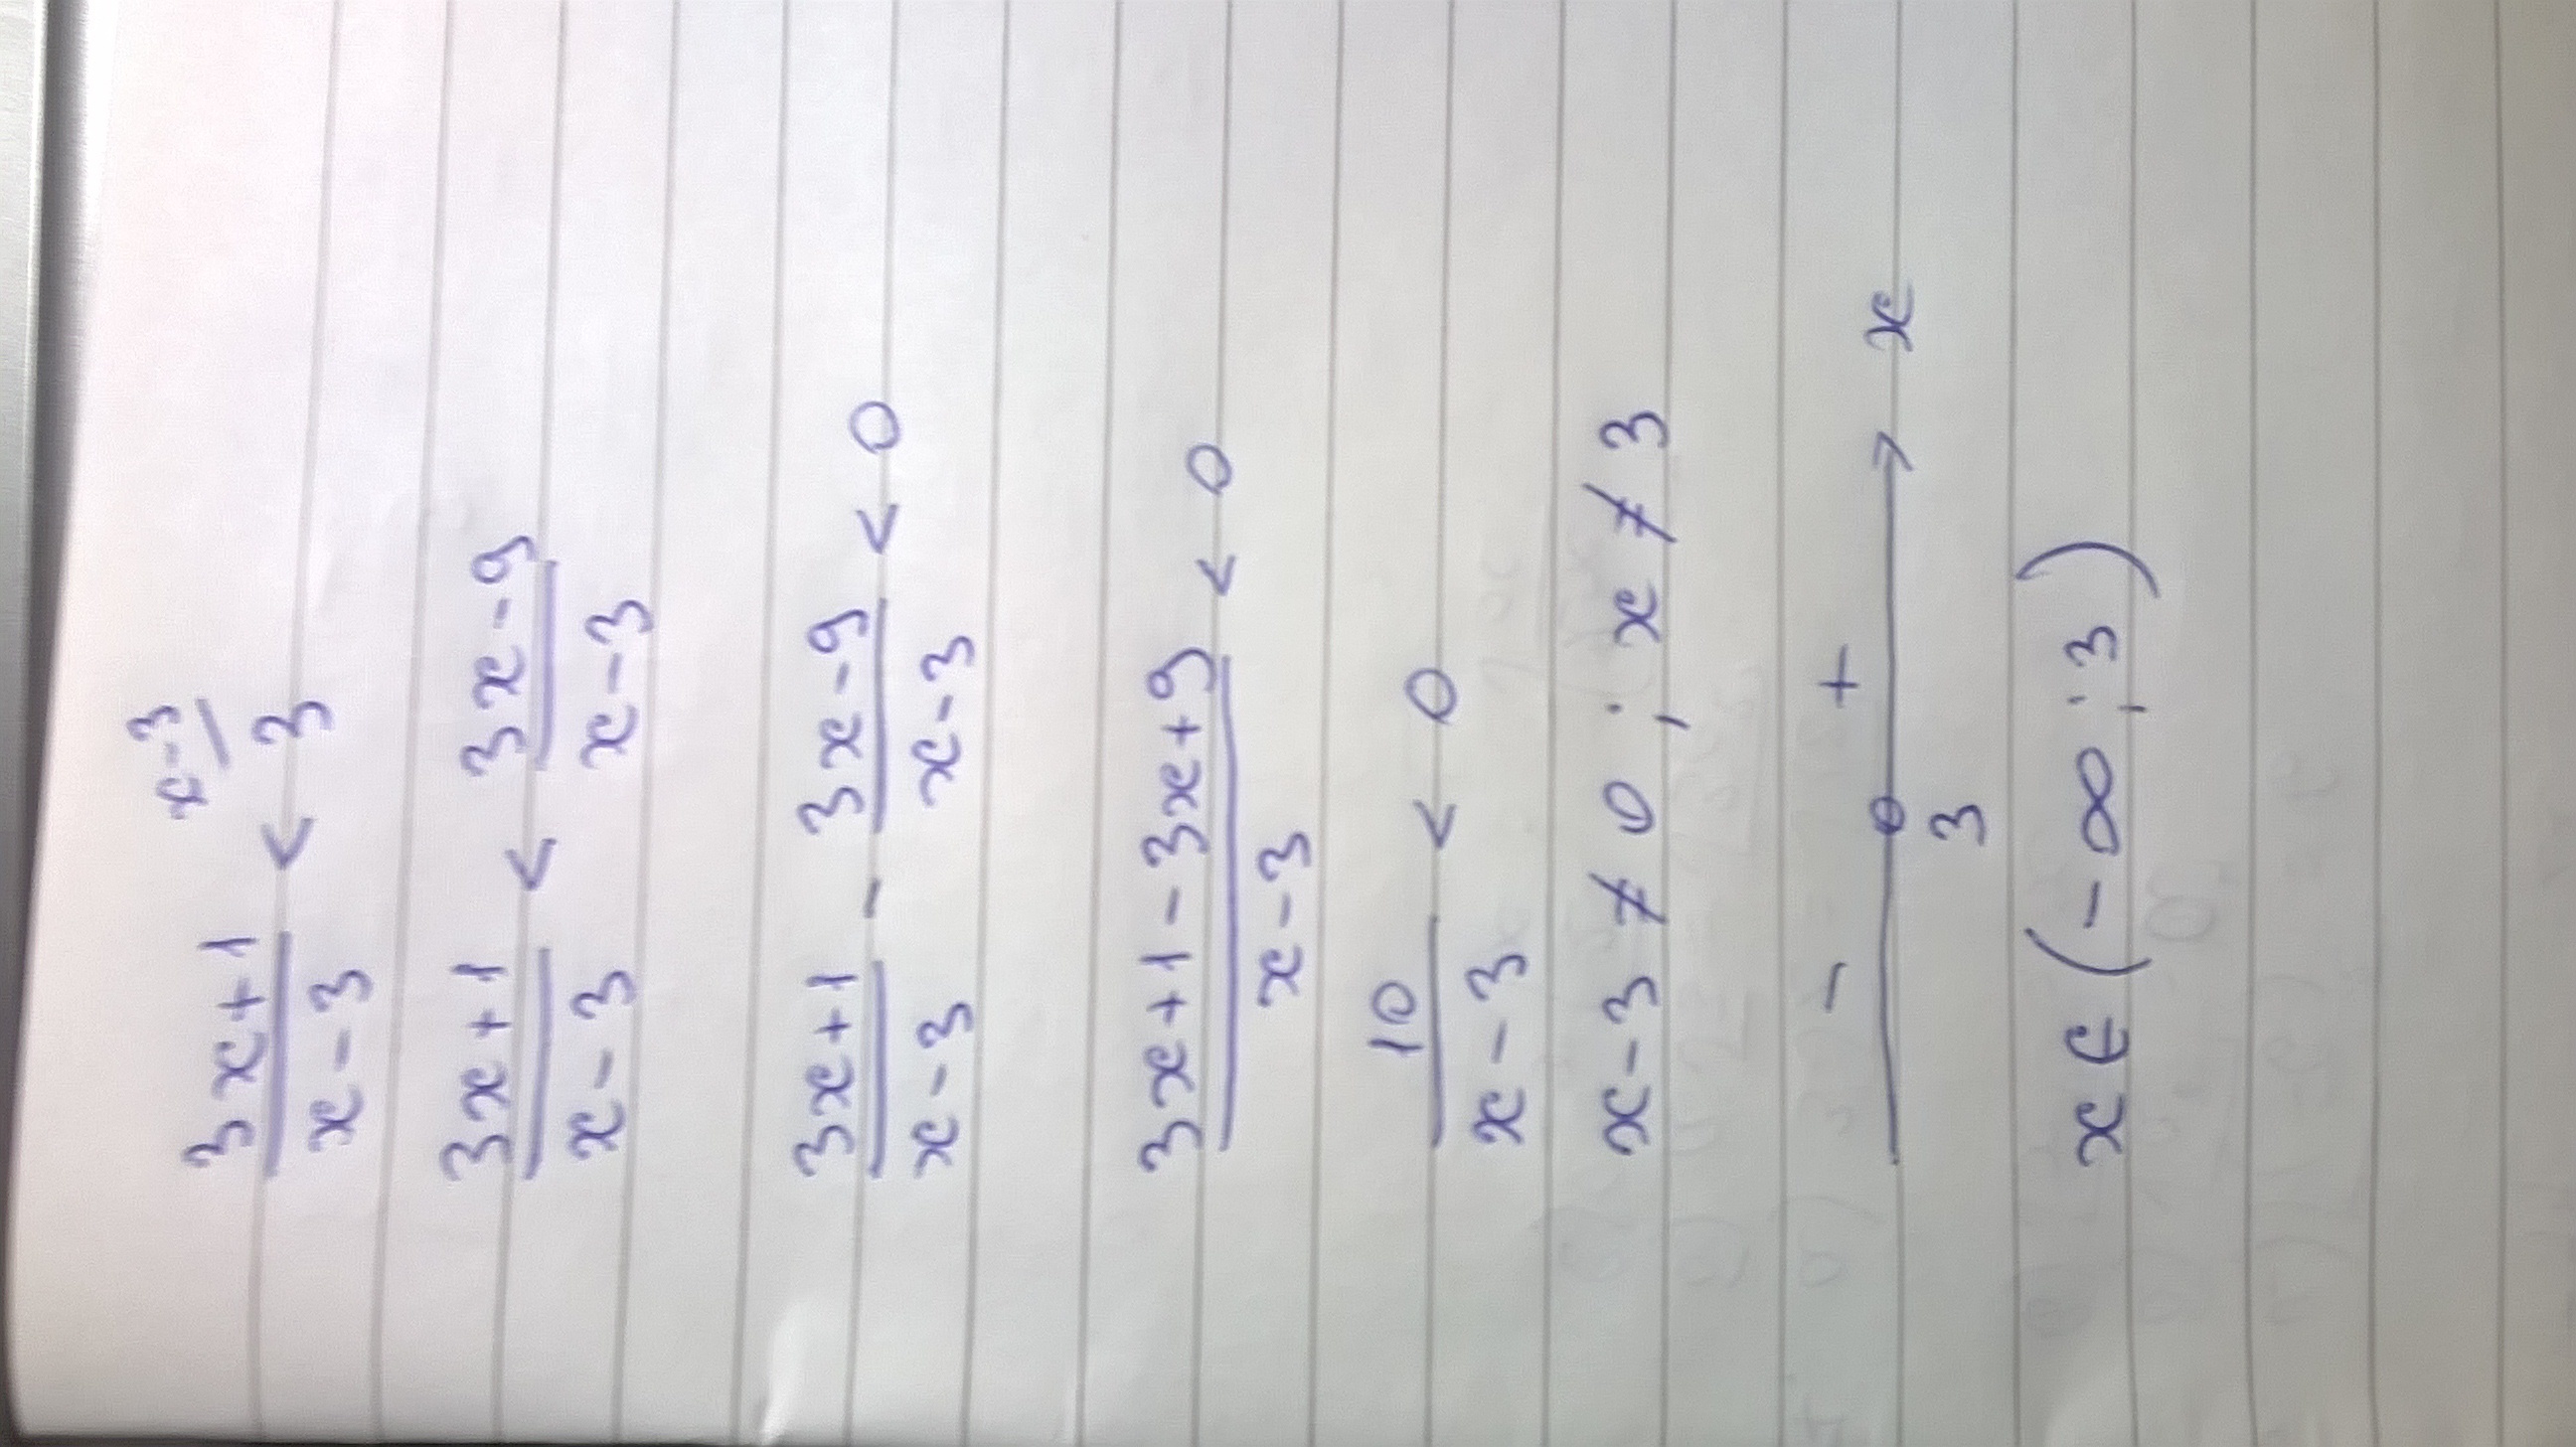 (3x+1)/(x-3) < 3 /x-3
(3x+1)/(x-3) < (3x-9)/(x-3)
(3x+1)/(x-3) - (3x-9)/(x-3) < 0
(3x+1-3x+9)/(x-3) < 0
10/(x-3) < 0
x-3 ≠ 0 ; x ≠ 3
- + x
3
x ∈ (-∞ ; 3)